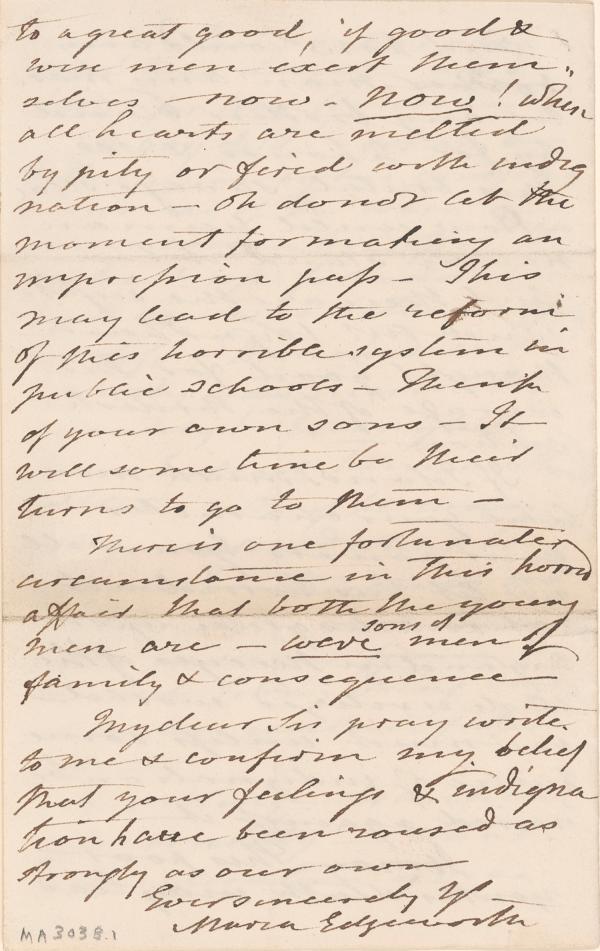 to a great good, if good &
wise men exert them-
selves now - now! when
all hearts are melted
by pity or fired with indig
nation - Oh do not let the
moment for making an
impression pass - This
may lead to the reform
of this horrible system in
public schools - Think
of your own sons - It
will some time be their
turns to go to them -
There is one fortunate
circumstance in this horrid
affair that both the young
men are - were sons of men of
family & consequence
My dear Sir pray write
to me & confirm my belief
that your feelings & indigna
tion have been roused as
strongly as our own
Ever sincerely Yrs
Maria Edgeworth
MA 3038.1